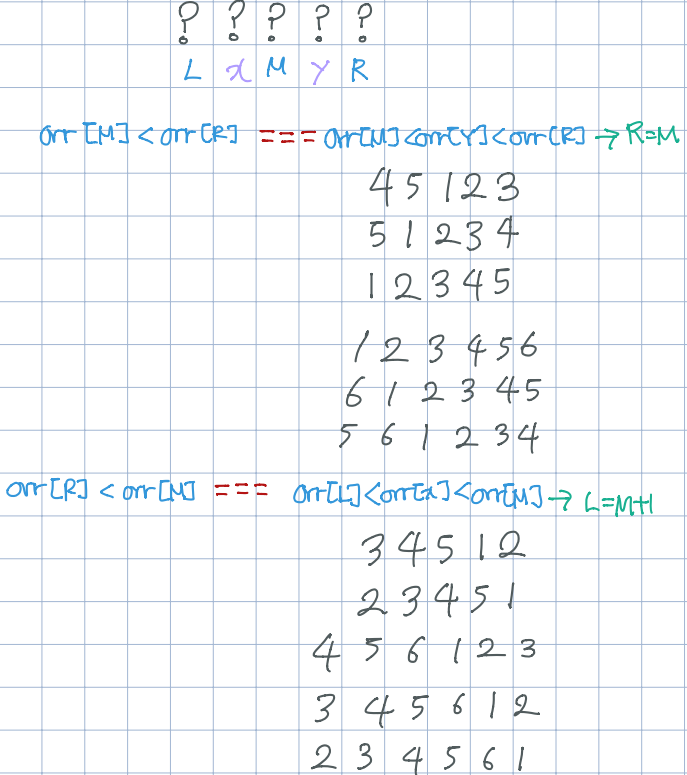 ? ? ? ? ?
L x M Y R
arr[M]<arr[R] === arr[M]<arr[Y]<arr[R] → R=M
4 5 1 2 3
5 1 2 3 4
1 2 3 4 5
1 2 3 4 5 6
6 1 2 3 4 5
5 6 1 2 3 4
arr[R]<arr[M] === arr[L]<arr[x]<arr[M] → L=M+1
3 4 5 1 2
2 3 4 5 1
4 5 6 1 2 3
3 4 5 6 1 2
2 3 4 5 6 1